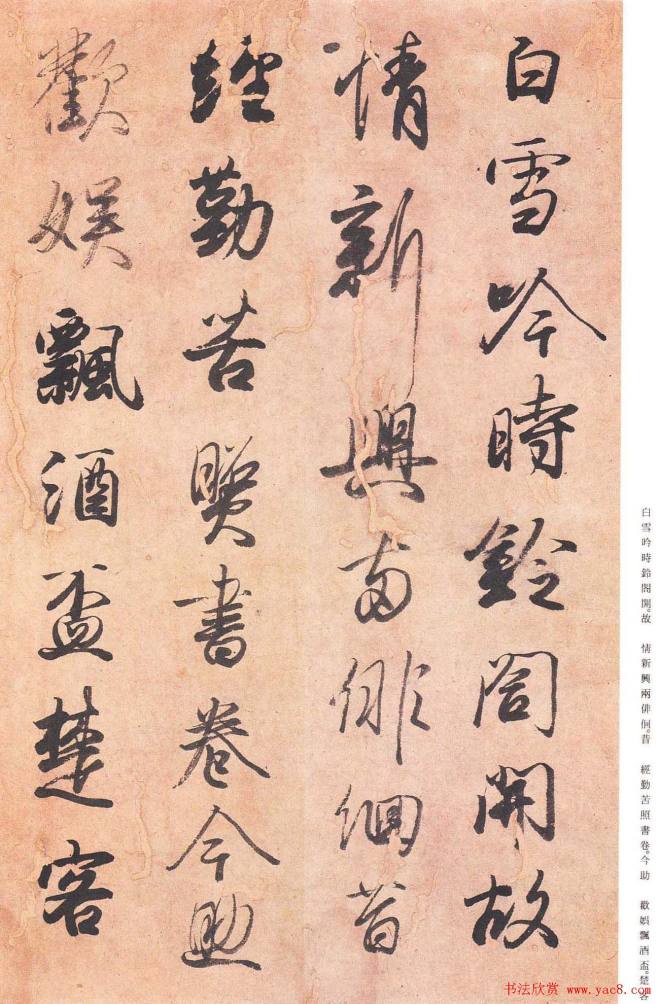 白雪吟時鈴閤開故
情新興兩俳佪昔
經勤苦照書卷今助
歡娛飄酒盃楚客
白雪吟時鈴閤開。故 情新興兩俳佪。昔 經勤苦照書卷。今助 歡娛飄酒盃。楚客
书法欣赏 www.yac8.com